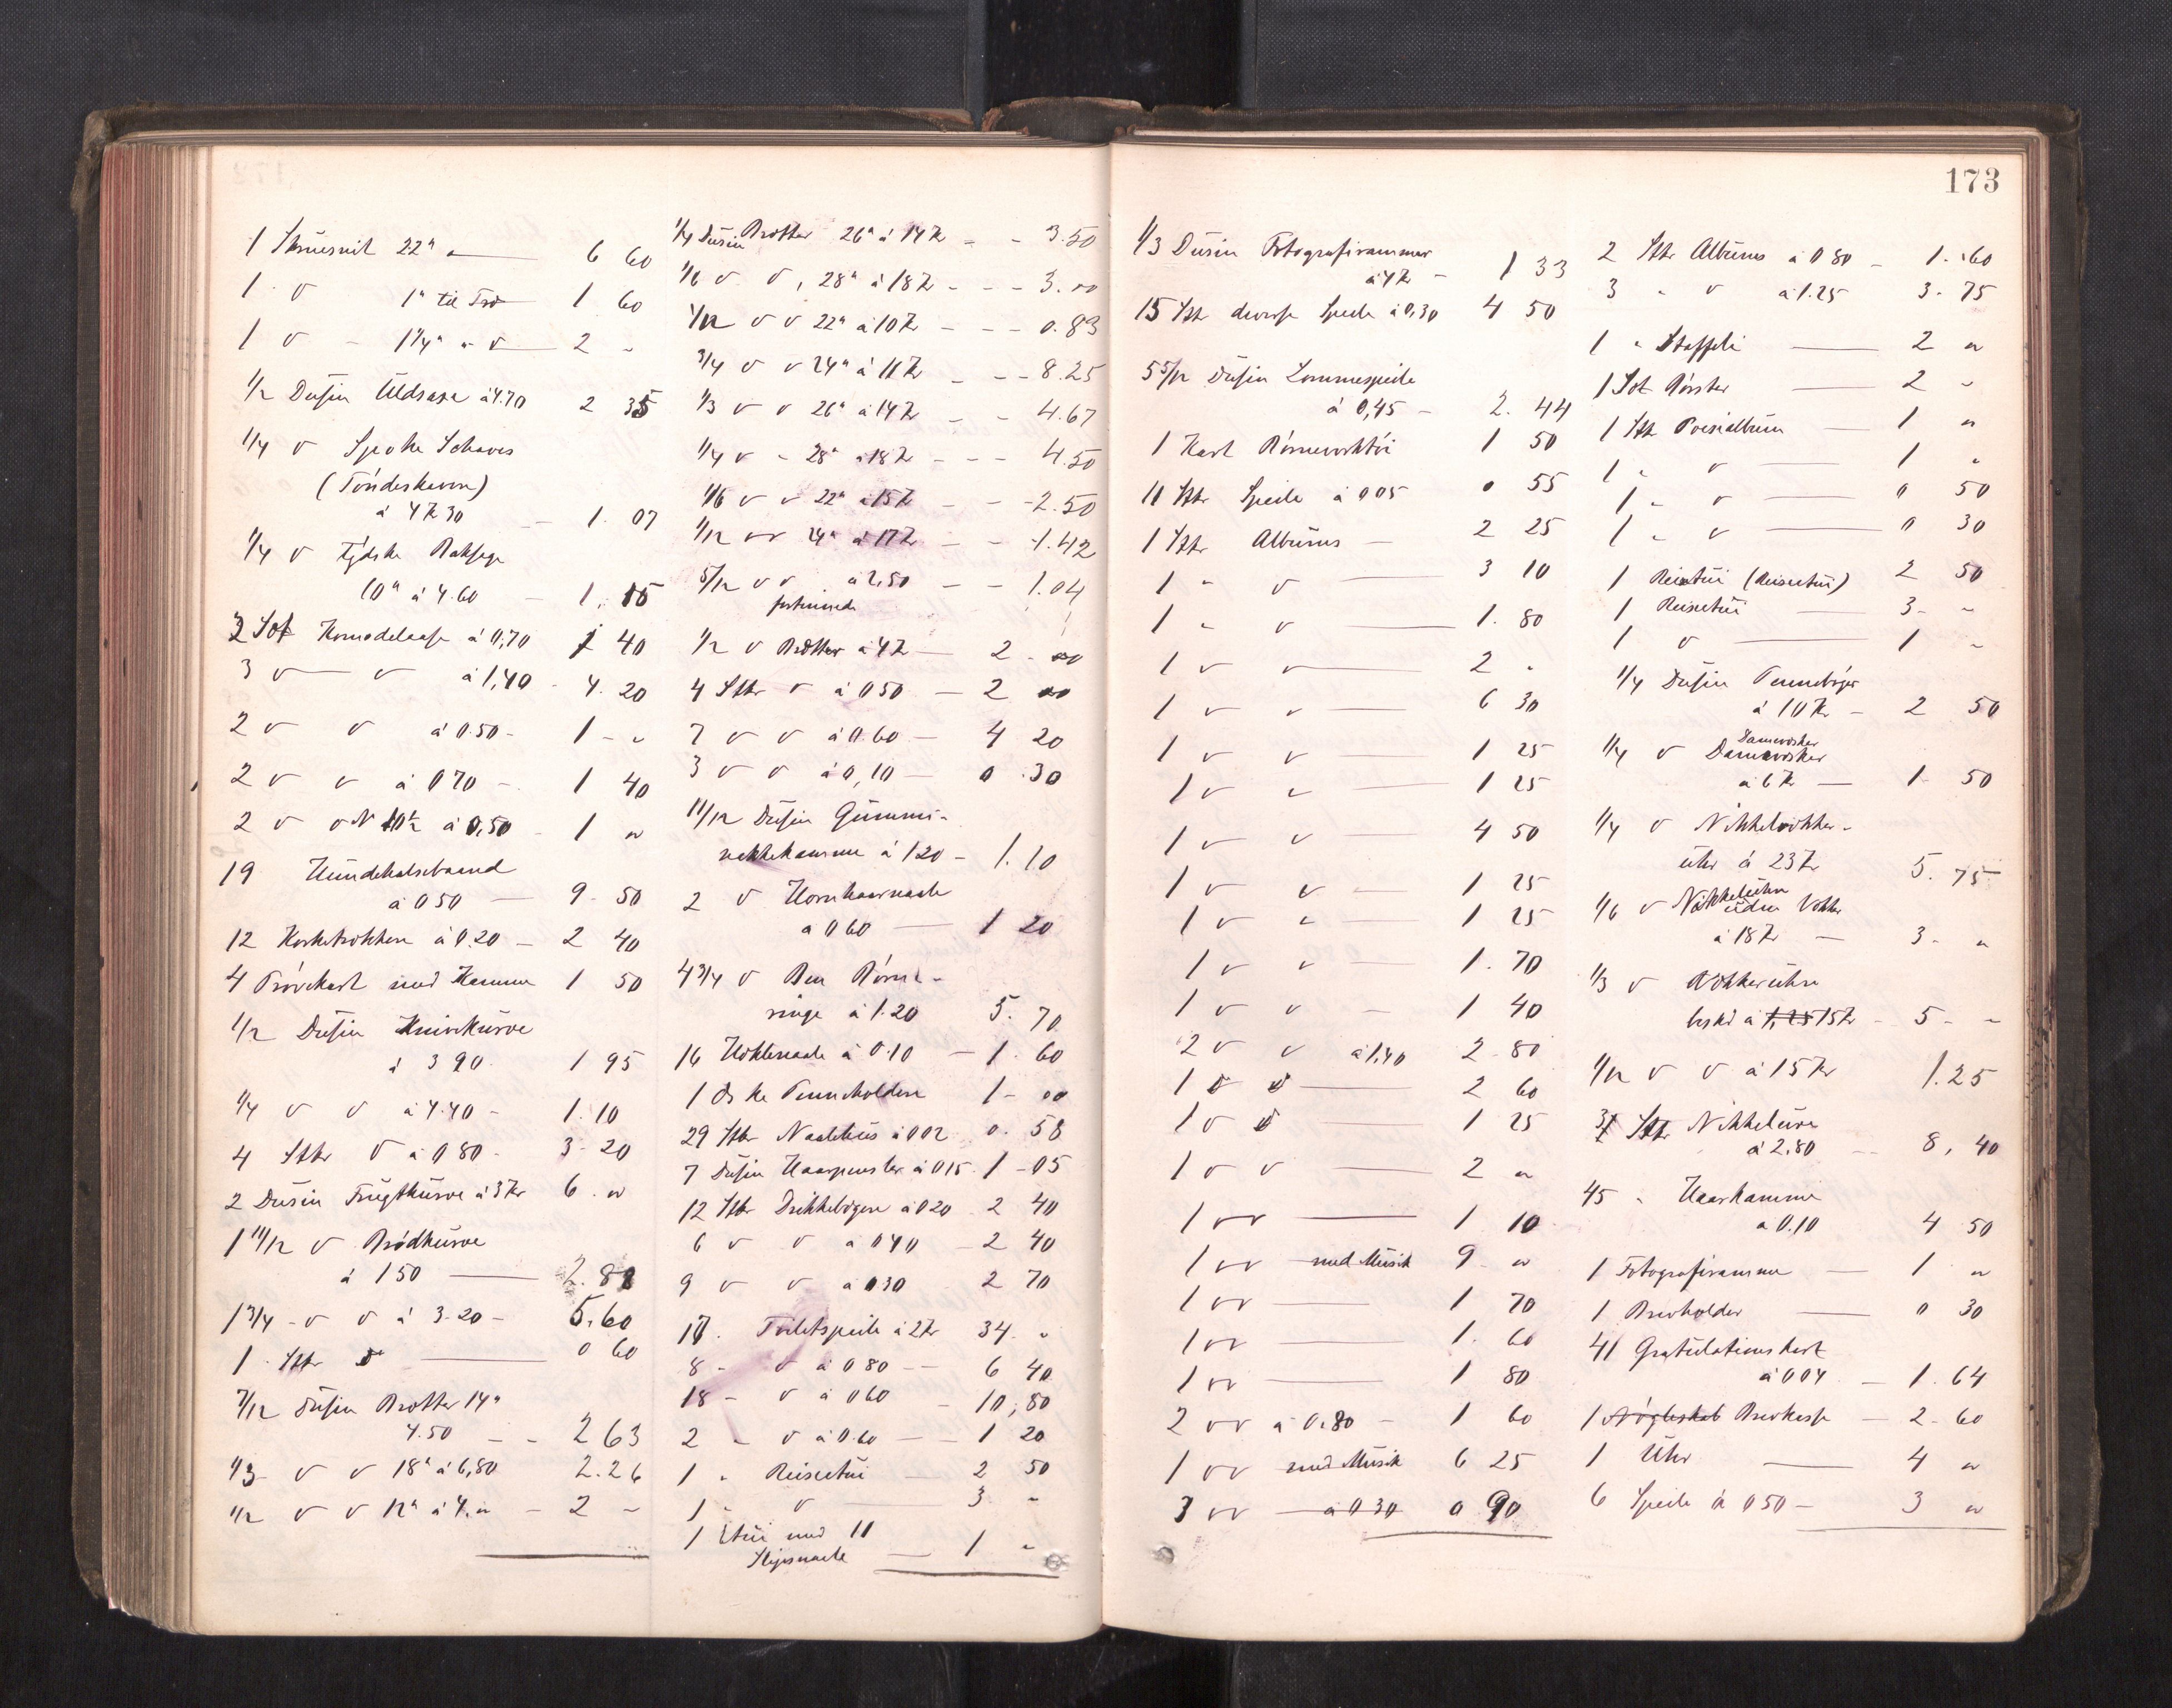 1 Skruesnit 22" 6 60
1 v 1" til Træ 1 60
1 v - 1 1/4" " v 2 "
1/2 Dusin Uldsaxe à 4.70 2 35
1/4 v Spoke Schaves
(Töndeskaven)
à 4 Kr 30 - 1. 07
1/4 v tydske
10" à 4.60 - 1. 15
2 Sæt Komodelaase à 0,70 1 40
3 v v à 1,40 - 4. 20
2 v v à 0.50 - 1 - "
2 v v à 0 70 - 1 40
2 v v N 10 1/2 à 0,50 - 1 "
19 Hundehalsbaand
à 0 50 - 9 - 50
12 Korketrækkere à 0.20 - 2 40
4 Prövekort med Kamme 1 50
1/2 Dusin Knivkurve
à 3 90. 1 95
1/4 v v à 4.40 - 1. 10
4 Stkr v à 0 80 - 3 - 20
2 Dusin Frugtkurve à 3 Kr 6. "
1 11/12 v Brödkurve
à 1 50 - 2. 88
1 3/4 - v v à 3.20 - 5. 60
1 Stkr v 0 60
7/12 Dusin Bræтter 14"
4.50 - - 2 63
1/3 - v v 18" à 6,80 2. 26
1/2 v v 12" à 4. " - 2 "
1/4 Dusin Brætter 26" à 14 Kr - - 3.50
1/6 v v, 28" à 18 Kr - - - 3. 00
1/12 v v 22" à 10 Kr - - - 0.83
3/4 v v 24" à 11 Kr - - - 8.25
1/3 v v 26" à 14 Kr - - 4.67
1/4 v " 28" à 18 Kr - - - 4.50
1/6 v v 22" à 15 Kr - - - 2.50
1/12 v v 24" à 17 Kr - - 1.42
5/12 v v à 2,50 - - 1.04
fortinnede
1/2 v Brætter à 4 Kr - 2 - 00
4 Stkr v à 0 50 - 2 00
7 v v à 0.60 - 4 20
3 v v à 0,10 - 0. 30
11/12 Dusin Gummi-
nakkekamme à 1 20 - 1. 10
2 v Hornhaarnaale
à 0 60 - 1 20
4 3/4 v Ben Börne-
ringe à 1.20 5. 70
16 Hæklenaale à 0.10 - 1. 60
1 Æske Penneholdere 1 - 00
29 Stkr Naalehus à 0 02 0. 58
7 Dusin Haarpensler à 0 15 1 - 05
12 Stkr Drikkebægere à 0 20 2 40
6 v v à 0 40 - 2 40
9 v v à 0 30 2 70
17. Toiletspeile à 2 Kr 34. "
8 - v à 0 80 - - 6 40
18 - v à 0 60 - 10, 80
2 " v à 0.60 - - 1 20
1 " Reiseetui 2 50
1 " v 3 "
1 Etui med 11
Slipsnaale 1 "
173
1/3 Dusin Fotografirammer
à 4 Kr - 1 33
15 Stkr diverse Speile à 0,30 4 50
5 5/12 Dusin Lommespeile
à 0,45 - 2. 44
1 Kart Börneverktöi 1 50
11 Stkr Speile à 0 05 0 55
1 Stkr Albums - 2 25
1 " v 3 10
1 " v 1. 80
1 v v 2 "
1 v v 6 30
1 v v 1 25
1 v " 1 25
1 v v 4 50
1 v v 1 25
1 v " 1 25
1 v v 1. 70
1 v v 1 40
2 v v à 1,40 2 - 80
1 v v 2 60
1 v v 1 25
1 v v 2 "
1 v v 1 10
1 v v med Musik 9 - "
1 v v 1 70
1 v v 1. 60
1 v v 1 80
2 v v à 0.80 - 1 60
1 v v med Musik 6 25
3 v v à 0 30 0 90
2 Stkr Albums à 0 80 - 1. 60
3 " v à 1.25 3 - 75
1 " Staffeli 2 "
1 Sæt Börster 2 "
1 Stk Poesialbum 1 "
1 " v 1 "
1 " v 0 50
1 " v 0 30
1 Reisetui (Reiseetui) 2 50
1 Reiseetui 3 - "
1 v 1 "
1/4 Dusin Pennebøger
à 10 Kr - 2 50
1/4 v Damevæsker
Damevæsker
à 6 Kr - 1 - 50
1/4 v Nikkelvækker-
uhr à 23 Kr 5. 75
1/6 v Nikkeluhre uden Vækker
à 18 Kr - 3 - "
1/3 v Vækkeruhre
à 1,25 15 Kr - 5 - "
1/12 v v à 15 Kr 1.25
3 Stkr Nikkelure
à 2.80 - - 8, 40
45 " Haarkamme
à 0.10 4 50
1 Fotografiramme - 1 "
1 Brevholder 0 30
41 Gratulationskort
à 0 04 - 1. 64
1 Nögleskab Brevkasse - 2 - 60
1 Uhr 4 "
6 Speile à 0 50 - 3 "